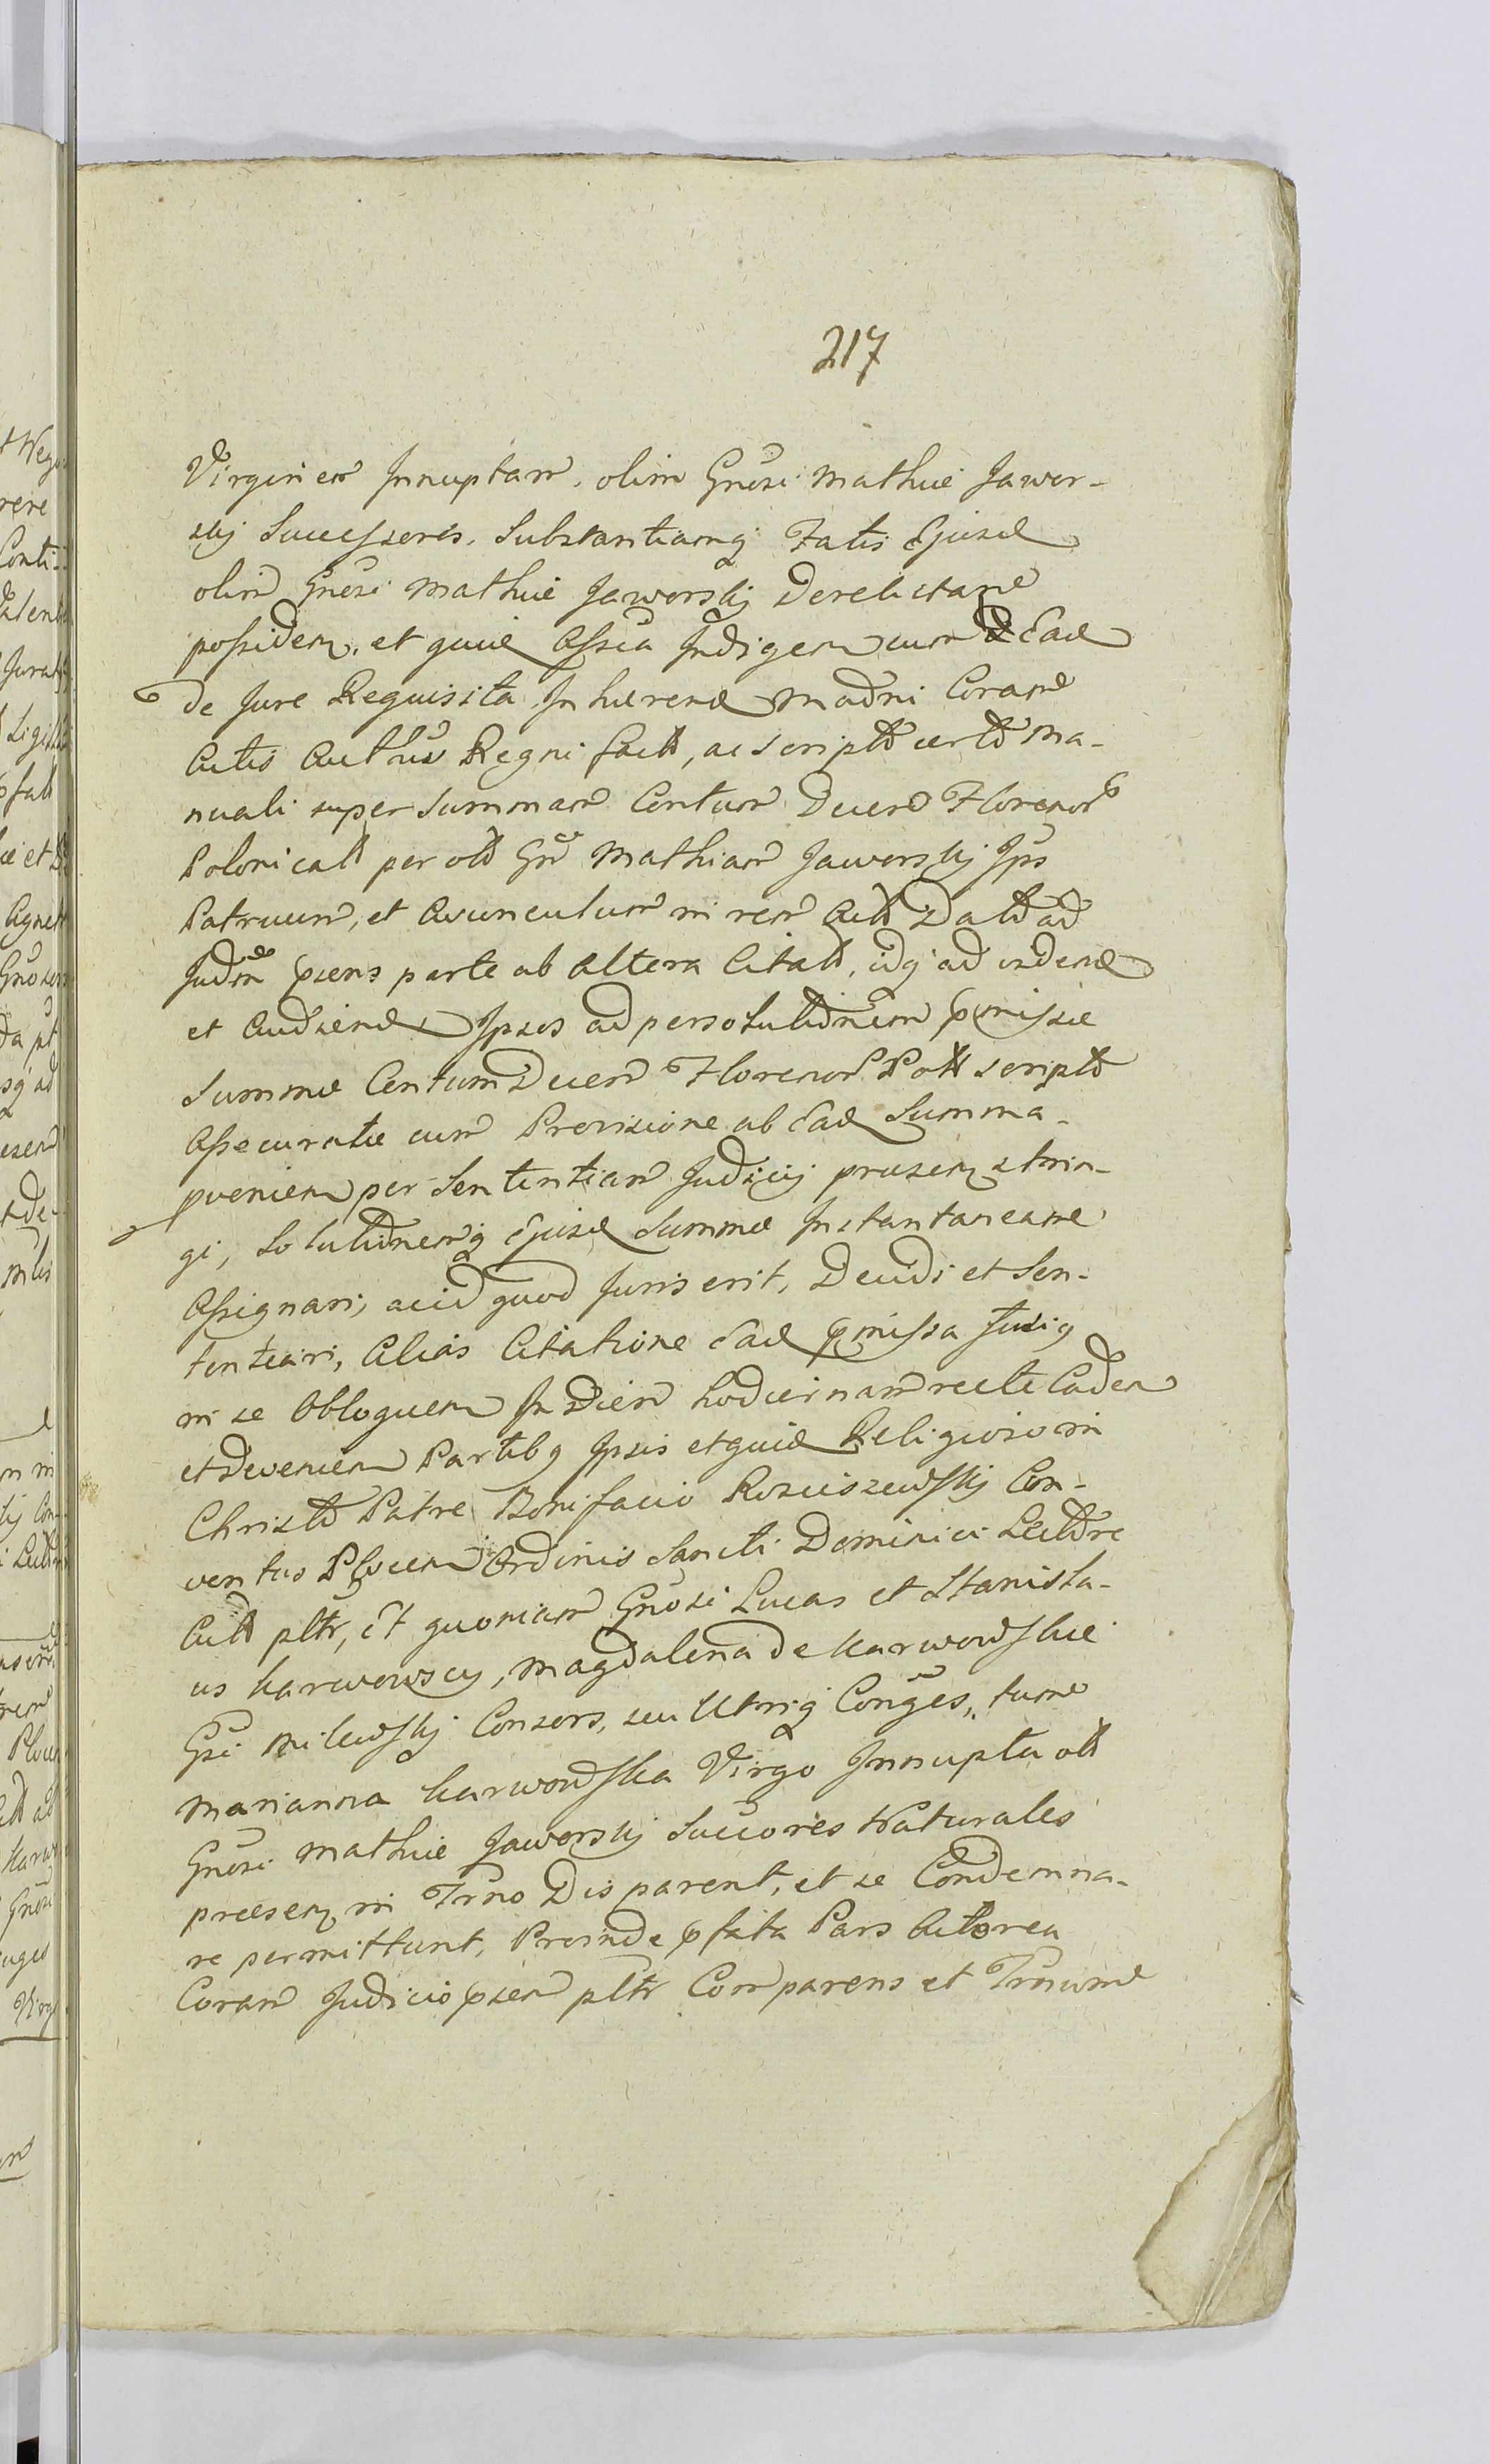 217
Virginem Innuptam, olim Gnosi Mathiæ Jawor-
skij Successores, Substantiamq Fatis Ejusd
olim Gnosi Mathiæ Jaworskij Derelictam
possiden, et quæ Assia Indigen cum Ead
De Jure Requisita Inhæren Madni Coram
Actis Regni fact, ac scripto certo Ma-
nuali super Summam Centum Decem Floreno
Polonical per oll Gn Mathiam Jaworskij Ips
Patruum, et Avunculum in rem Act Dato ad
Judm pnens parte ab Altera Citat, idq ad viden
et Audien Ipsos ad persolutionem pmissæ
Summæ Centum Decem Florenor Poll scripto
Assecuratæ cum Provisione ab Ead Summa
pvenien per Sententiam Judicij præsen strin-
gi, Solutionemq Ejusd Summæ Instantaneam
Assignari, acid quod Juris erit, Decidi et Sen-
tentiari, Alias Citatione Ead pmissa
in se Obloquen In Diem hodiernam recte Caden
et Devenien Partibq Ipsis et quid Religioso in
Christo Patre Bonifacio Rosciszewskij Con-
ventus Plocen Ordinis Sancti Dominici Lectore
Act pltr, Et quoniam Gnosi Lucas et Stanisla-
us Karwowscy, Magdalena de Karwowskie
Gsi Milewskij Consors, seu Utriq Conges, tum
Marianna Karwowska Virgo Innupta oll
Gnosi Mathiæ Jaworskij Succores Naturales
præsen in Trno Disparent, et se Condemna-
re permittunt, Proinde pfata Pars Actorea
Coram Judicio psen pltr Comparens et Trnum